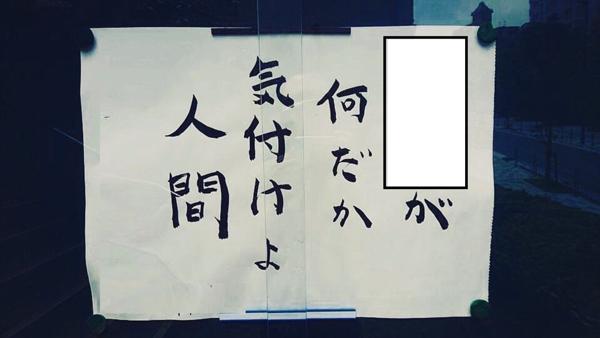 が
何だか
気付けよ
人間